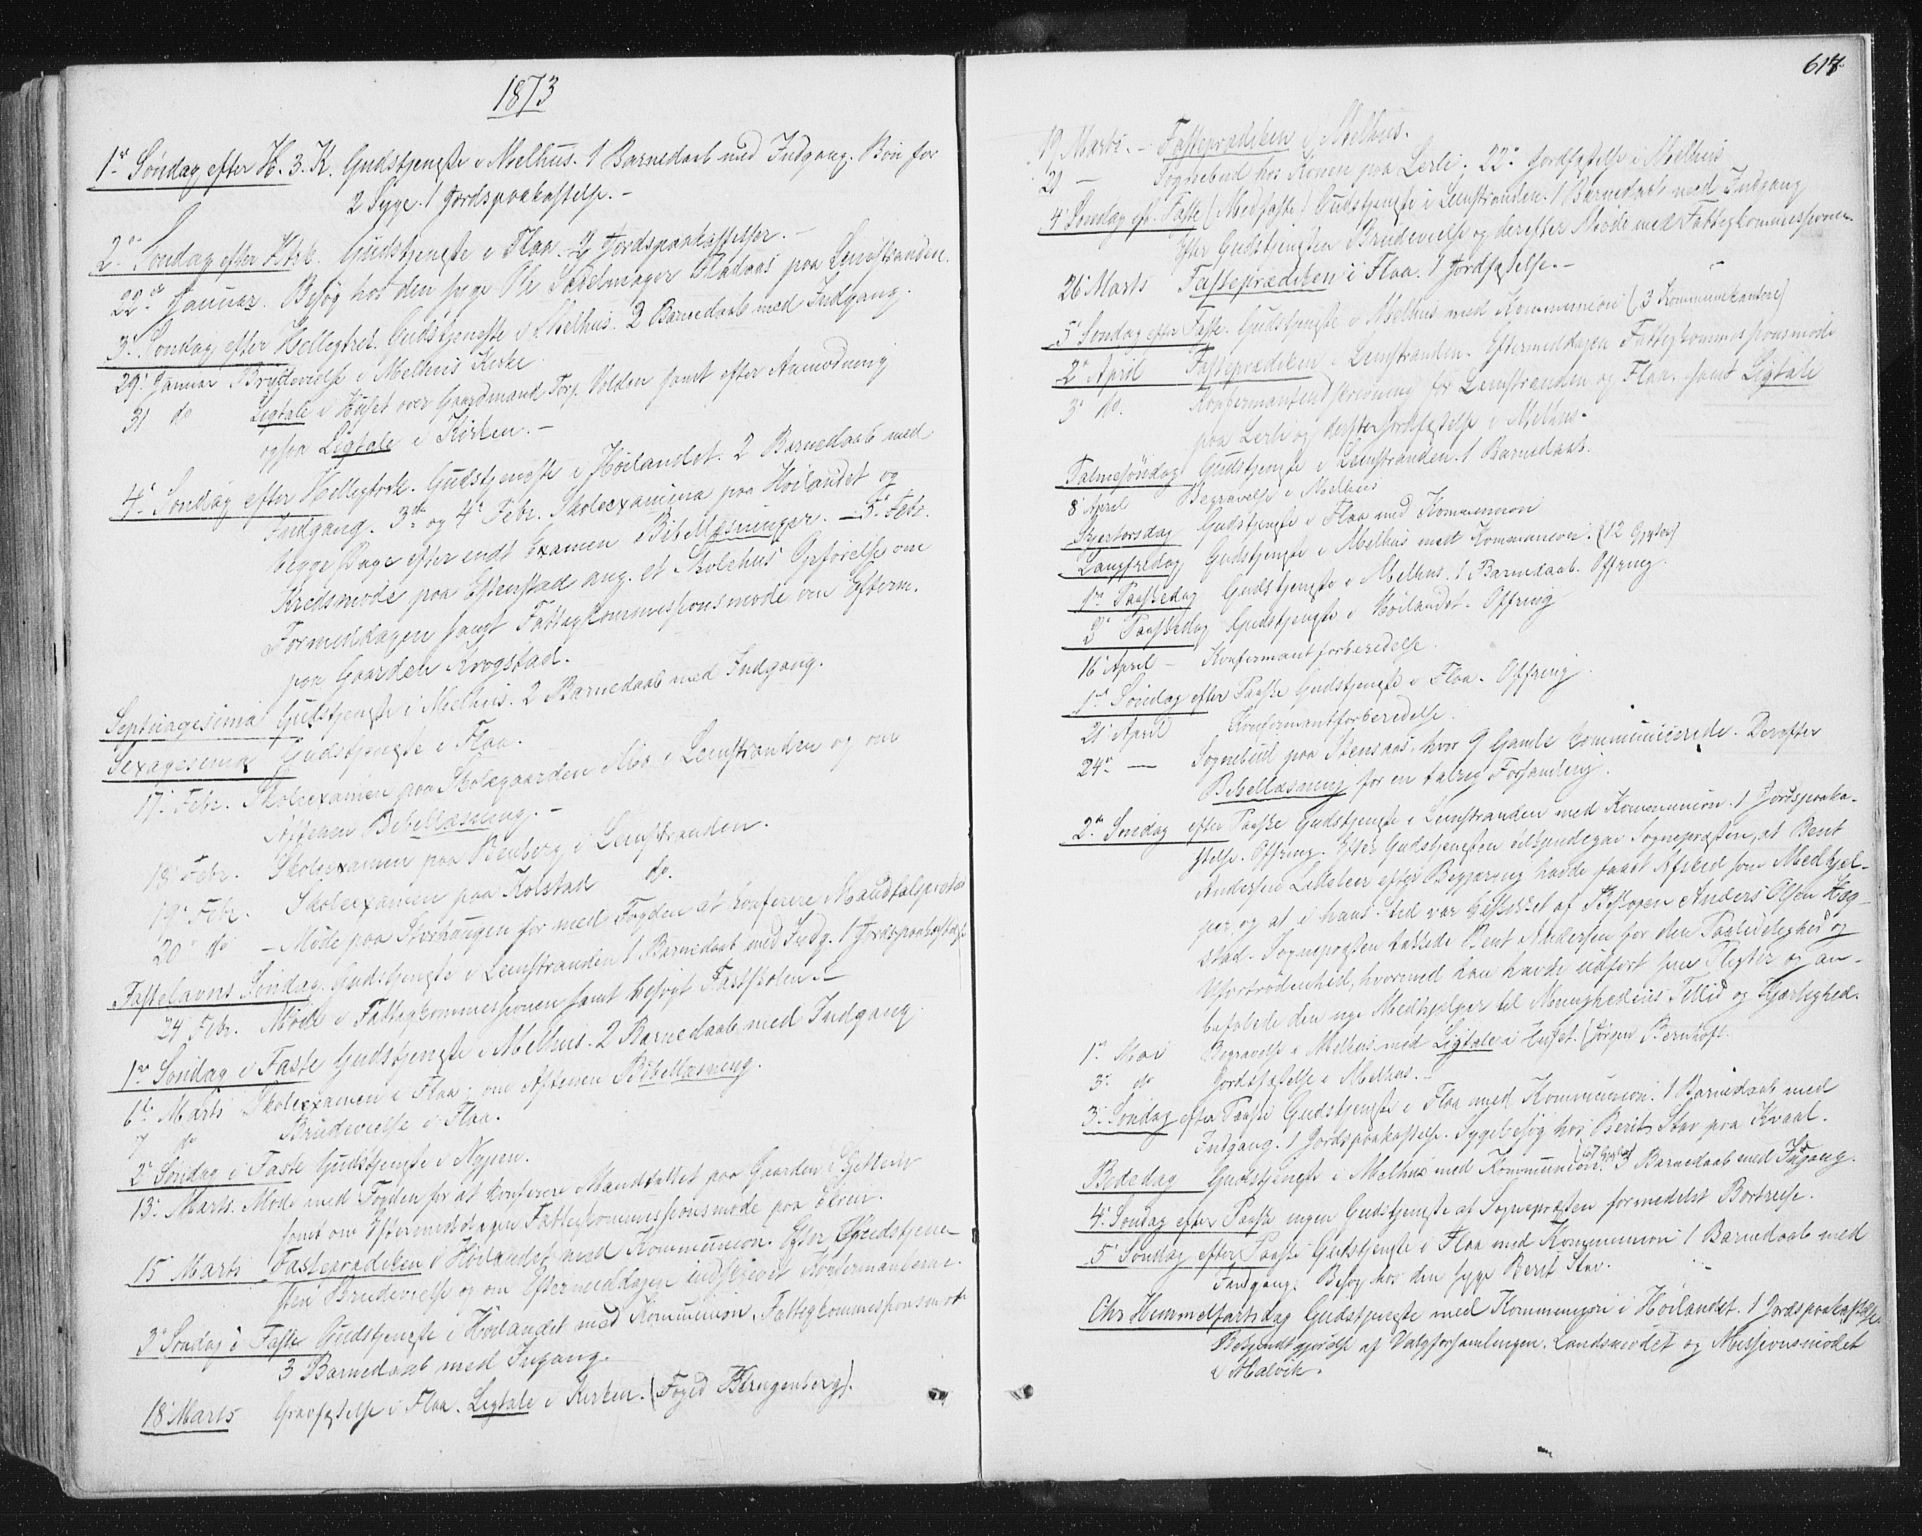 1873
1ste Søndag efter H. 3. K. Gudstjeneste i Melhus. 1 Barnedaab med Indgang. Bøn for
2 Syge. 1 Jordspaakastelse. –
2den Søndag efter H3K. Gudstjeneste i Flaa. 2 Jordspaakastelser. –
22de Januar. Besøg hos den syge Ole Sadelmager paa Leinstranden.
3die Søndag efter Helligtrek. Gudstjeneste i Melhus. 2 Barnedaab med Indgang.
29de Januar Brudevielse i Melhus Kirke
31 do Ligtale i Huset over Gaardmand Volden samt efter Anmodning
ogsaa Ligtale i Kirken. –
4de Søndag efter Helligtrek. Gudstjeneste i Høilandet. 2 Barnedaab med
Indgang. 3die og 4de Febr. Skoleexamina paa Høilandet og
begge Dage efter endt Examen Bibellæsninger. – 5te Febr.
Kredsmøde paa Estenstad ang. et Skolehus' Opførelse om
Formiddagen samt Fattigkommissionsmøde om Efterm.
paa Gaarden Krogstad.
Septuagesima Gudstjeneste i Melhus. 2 Barnedaab med Indgang.
Sexagesima Gudstjeneste i Flaa.
17de Febr. Skoleexamen paa Skolegaarden Mo i Leinstranden og om
Aftenen Bibellæsning. –
18de Febr. Skoleexamen paa Benberg i Leinstranden.
19de Febr. Skoleexamen paa Kolstad do.
20de do – Møde paa Storhaugen for med Fogden at konferere Mandtalsprotok
Fastelavns Søndag. Gudstjeneste i Leinstranden 1 Barnedaab med Indg. 1 Jordspaakastelse
24 Febr. Møde i Fattigkommissionen samt besøgt Fastskolen. –
1ste Søndag i Faste Gudstjeneste i Melhus. 2 Barnedaab med Indgang
6te Marts Skoleexamen i Flaa. om Aftenen Bibellæsning.
7 do Brudevielse i Flaa.
2den Søndag i Faste Gudstjeneste i Nypen.
13de Marts. Møde med Fogden for at konferere Mandtallet paa Gaarden
samt om Eftermiddagen Fattigkommissionsmøde paa Øren.
15 Marts Fasteprædiken i Høilandet med Kommunion. Efter Gudstjene-
sten Brudevielse og om Eftermiddagen indskrevet Konfirmanterne.
3die Søndag i Faste Gudstjeneste i Høilandet med Kommunion. Fattigkommissionsmøde
3 Barnedaab med Ingang.
18de Marts Gravfæstelse i Flaa. Ligtale i Kirken. (Foged Klingenberg).
617.
19 Marts. – Fasteprædiken i Melhus.
21 – Sognebud hos Konen paa Lerli; 22de Jordfæstelse i Melhus
4de Søndag eft. Faste (Midfaste) Gudstjeneste i Leinstranden. 1 Barnedaab med Indgang
Efter Gudstjenesten Brudevielse og derefter Møde med Fattigkommissionen.
26de Marts Fasteprædiken i Flaa. 1 Jordfæstelse. –
5te Søndag efter Faste. Gudstjeneste i Melhus med Kommunion (3 Kommunikanter)
2den April Fasteprædiken i Leinstranden. Eftermiddagen Fattigkommissionsmøde
3die do. Konfirmantindskrivning for Leinstranden og Flaa. samt Ligtale
paa Lerli og derefter Jordfæstelse i Melhus.
Palmesøndag Gudstjeneste i Leinstranden. 1 Barnedaab.
8 April Begravelse i Melhus
Skjærtorsdag Gudstjeneste i Flaa med Kommunion
Langfredag Gudstjeneste i Melhus med Kommunion. (12 Gjester)
1ste Paaskedag Gudstjeneste i Melhus. 1 Barnedaab. Offring.
2den Paaskedag Gudstjeneste i Høilandet. Offring
16de April – Konfirmantforberedelse.
1ste Søndag efter Paaske Gudstjeneste i Flaa. Offring.
21de April Konfirmantforberedelse.
24de — Sognebud paa Stensaas, hvor 9 Gamle kommunicerede. Derefter
Bibellæsning for en talrig Forsamling.
2den Søndag efter Paaske Gudstjeneste i Leinstranden med Kommunion. 1 Jordspaaka-
stelse. Offring. Efter Gudstjenesten tilkjendegav Sognepræsten, at Bent
Andersen efter Begjæring havde faaet Afsked som Medhjel-
per, og at i hans Sted var beskikket af Biskopen Anders Olsen Hag-
stad. Sognepræsten takkede Bent Andersen for den Paalidelighed og
Ufortrødenhed, hvormed han havde udført sine Pligter og an-
befalede den nye Medhjælper til Menighedens Tillid og Kjærlighed.
1ste Mai Begravelse i Melhus med Ligtale i Huset. (Jørgen Bernhoft.
3die do Jordfæstelse i Melhus. –
3die Søndag efter Paaske Gudstjeneste i Flaa med Kommunion. 1 Barnedaab med
Indgang. 1 Jordspaakastelse. Sygebesøg hos Berit Stav paa Kvaal.
Bededag Gudstjeneste i Melhus med Kommunion. 3 Barnedaab med Ingang.
4de Søndag efter Paaske ingen Gudstjeneste af Sognepræsten formedelst Bortreise.
5te Søndag efter Paaske Gudstjeneste i Flaa med Kommunion 1 Barnedaab med
Indgang. Besøg hos den syge Berit Stav.
Chr. Himmelfartsdag Gudstjeneste med Kommunion i Høilandet. 1 Jordspaakastelse
Bekjendtgjørelse af Valgforsamlingen, Landsmødet og Missionsmødet
i Malvik.